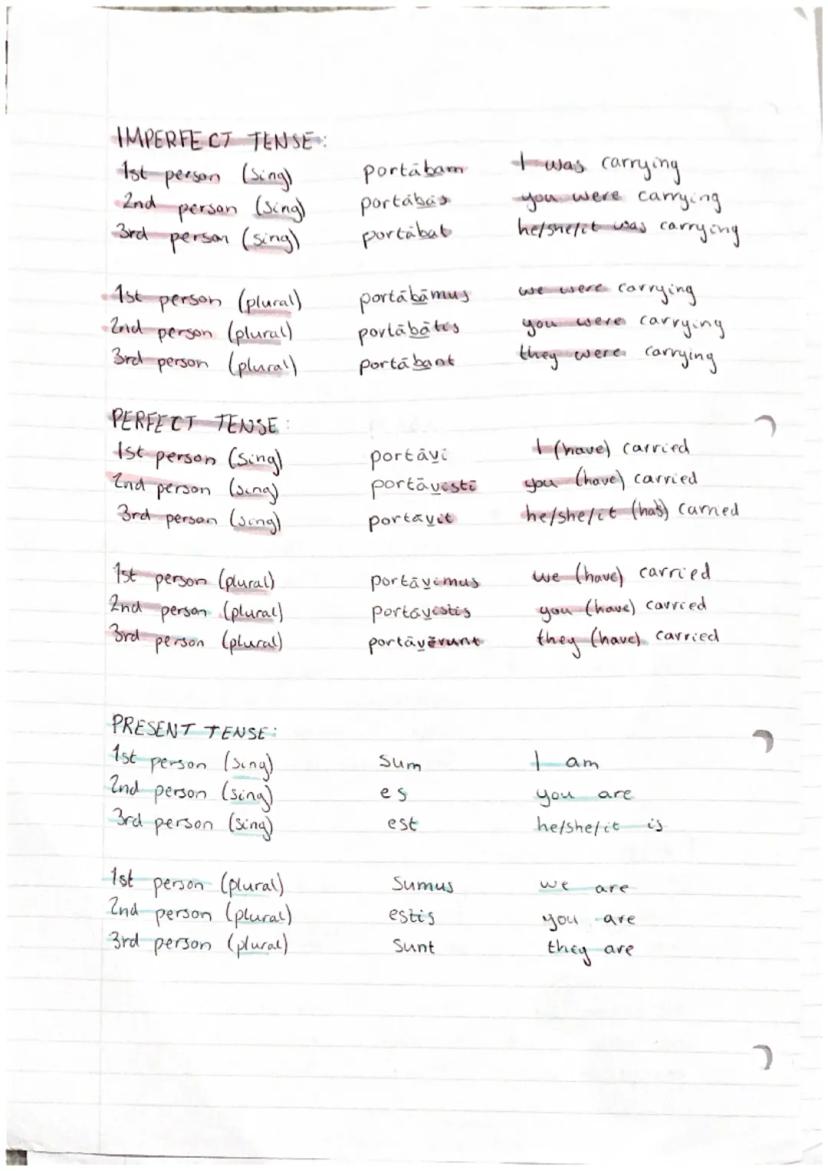 IMPERFECT TENSE:
1st person (sing) portābam I was carrying
2nd person (sing) portābās you were carrying
3rd person (sing) portābat he/she/it was carrying
1st person (plural) portābāmus we were carrying
2nd person (plural) portābātis you were carrying
3rd person (plural) portābant they were carrying
PERFECT TENSE:
1st person (sing) portāvi I (have) carried
2nd person (sing) portāvistī you (have) carried
3rd person (sing) portāvit he/she/it (has) carried
1st person (plural) portāvimus we (have) carried
2nd person (plural) portāvistis you (have) carried
3rd person (plural) portāvērunt they (have) carried
PRESENT TENSE:
1st person (sing) sum I am
2nd person (sing) es you are
3rd person (sing) est he/she/it is
1st person (plural) sumus we are
2nd person (plural) estis you are
3rd person (plural) sunt they are